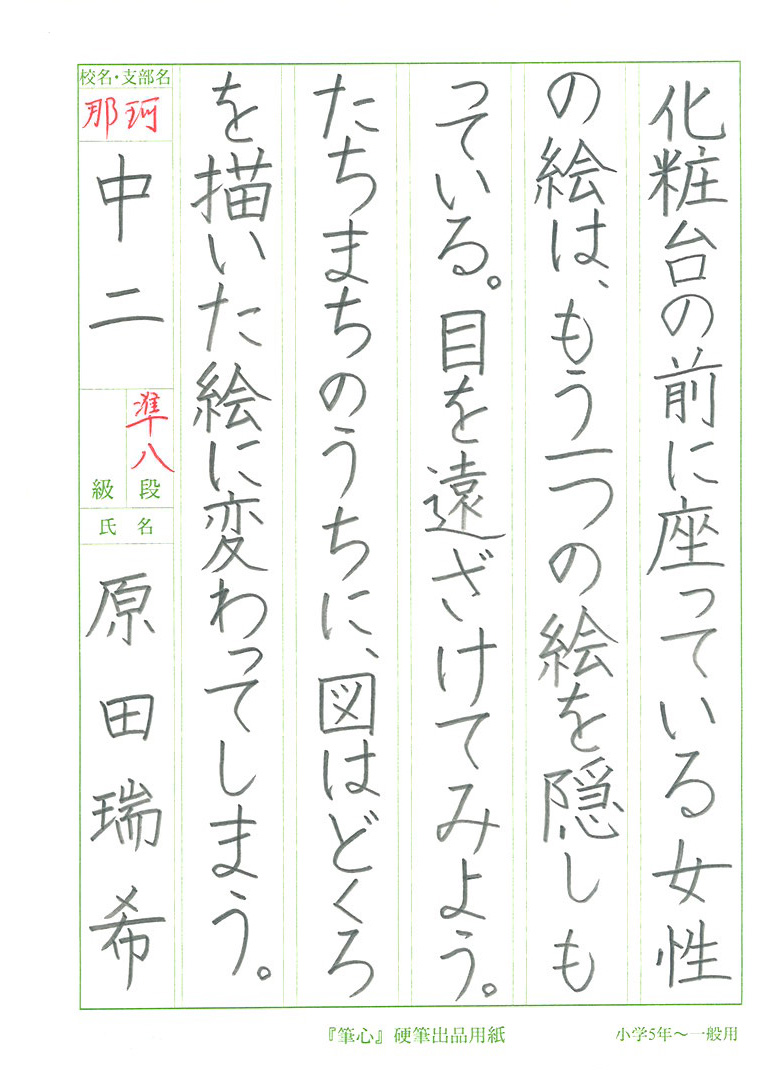 化粧台の前に座っている女性
の絵は、もう一つの絵を隠しも
っている。目を遠ざけてみよう。
たちまちのうちに、図はどくろ
を描いた絵に変わってしまう。
校名・支部名
那珂
中二
準八
段
級
氏名
原田瑞希
『筆心』硬筆出品用紙
小学5年〜一般用